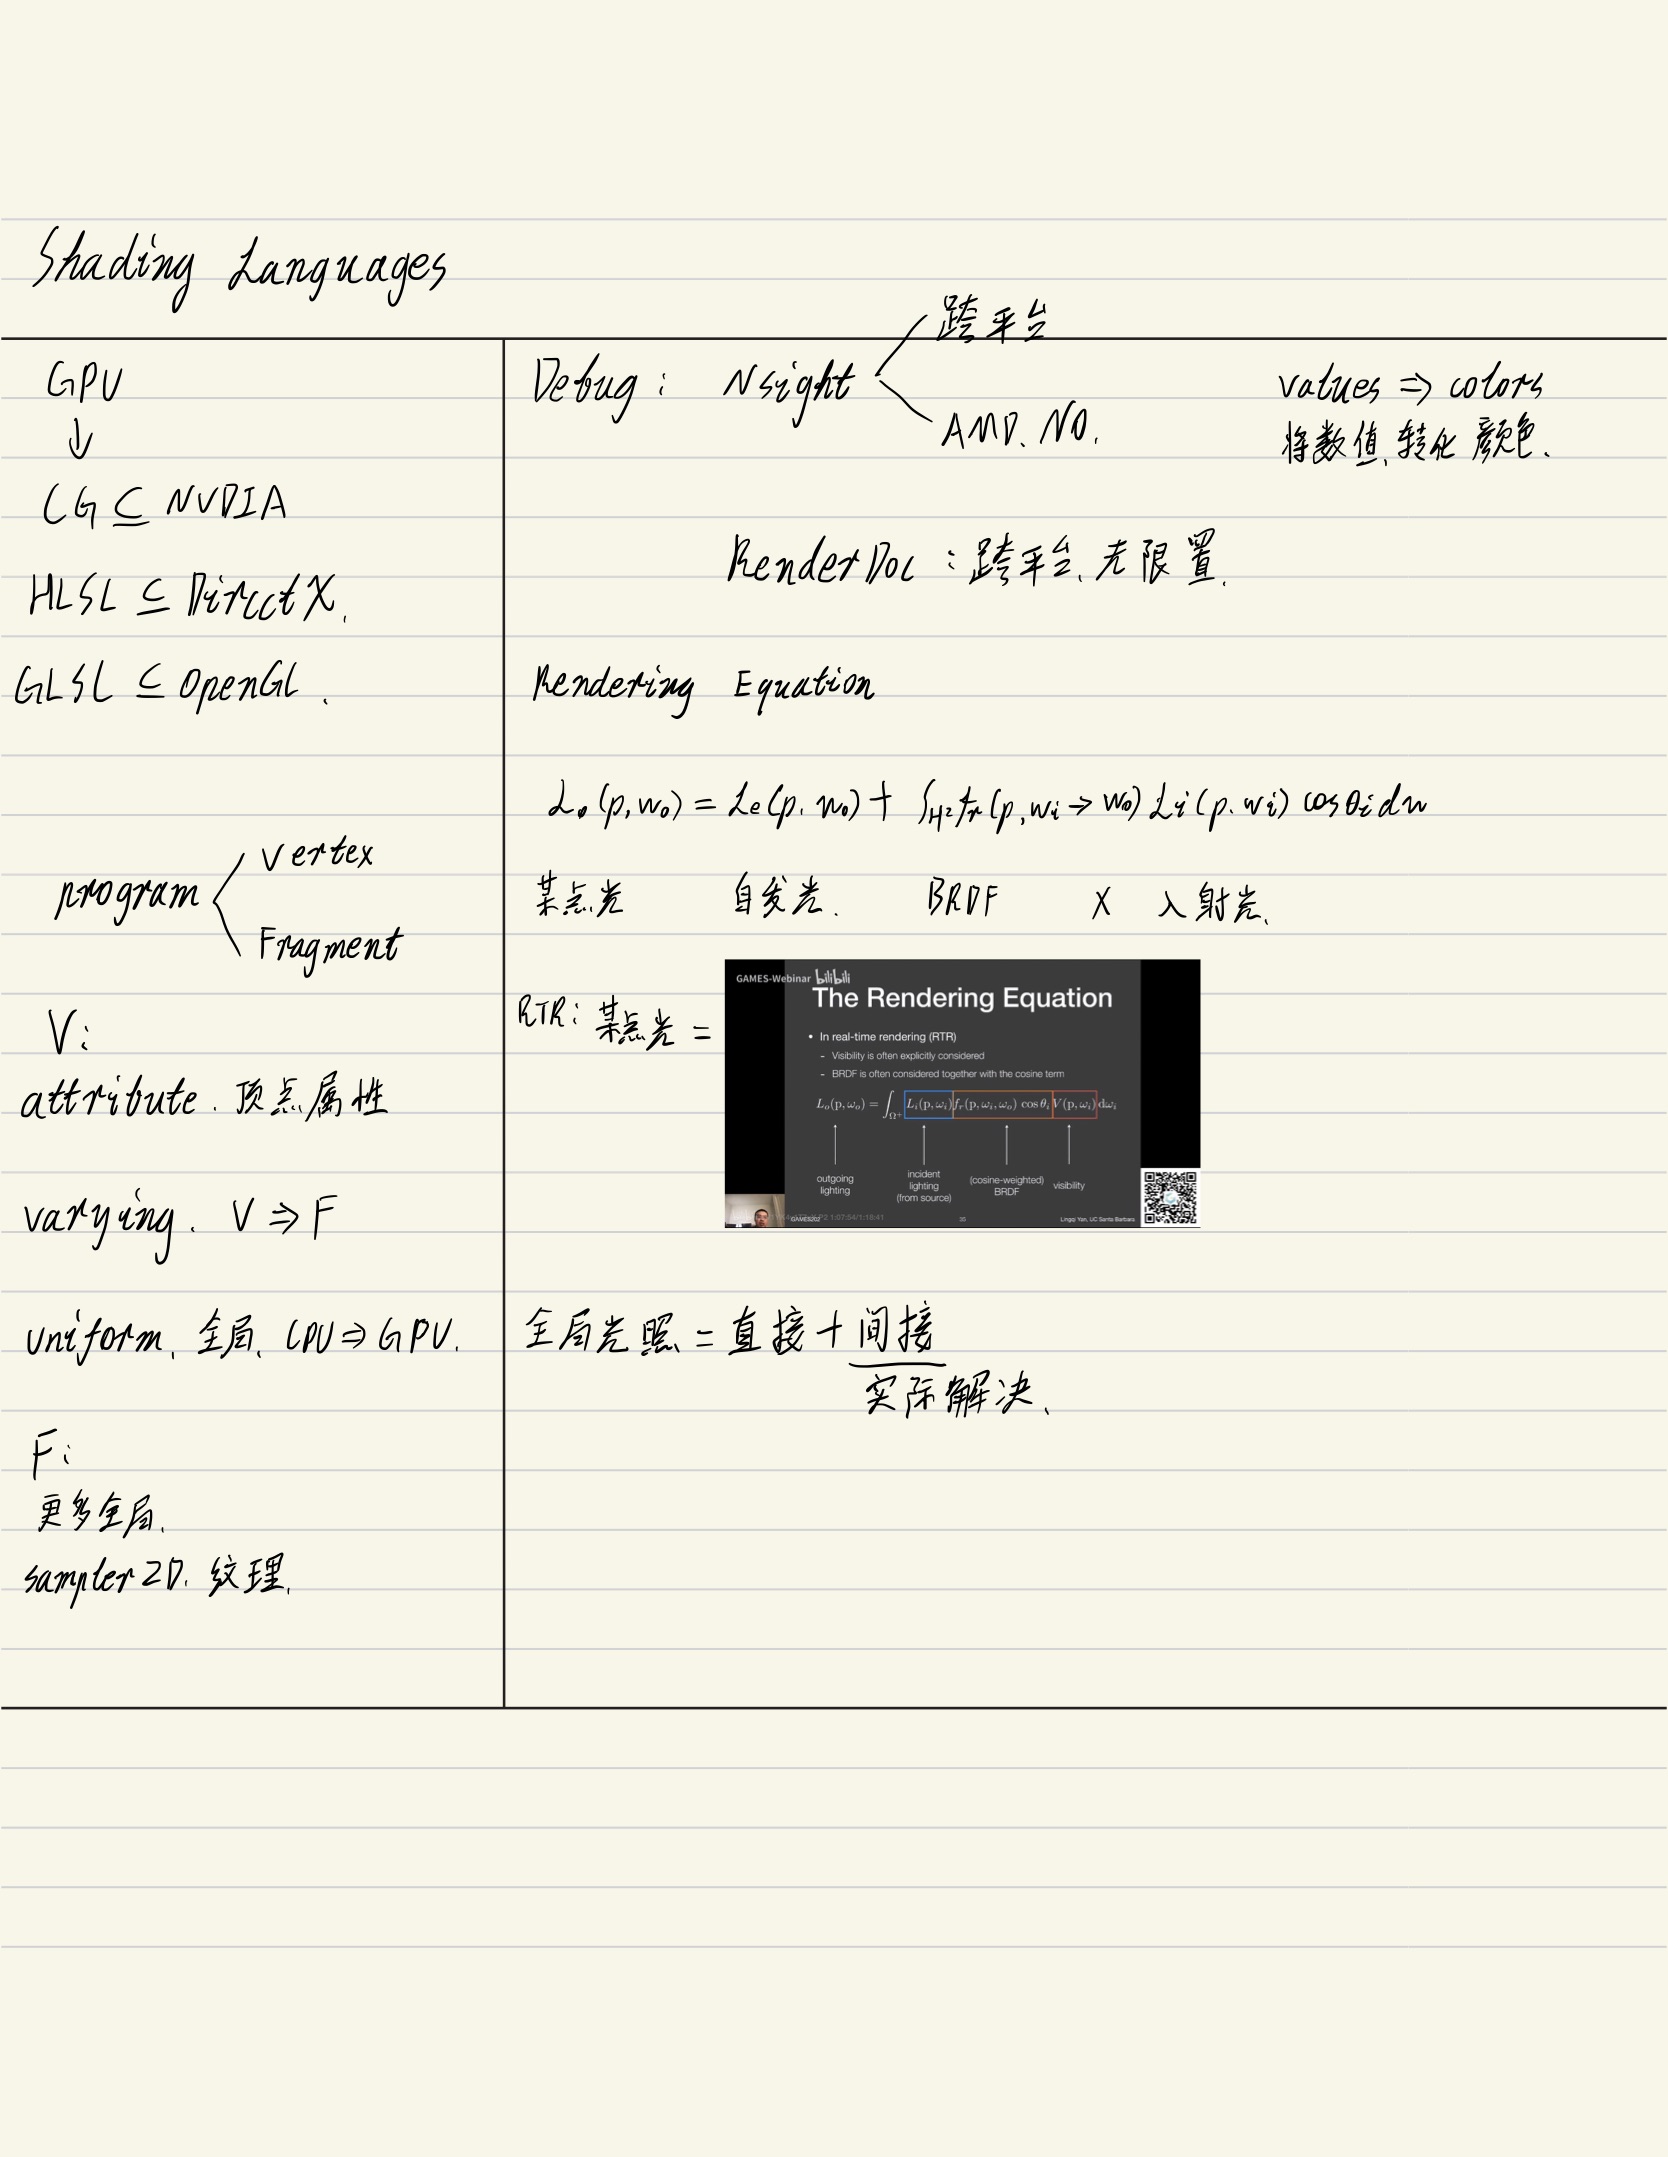 Shading Languages
GPU
↓
CG ⊆ NVDIA
HLSL ⊆ DirectX.
GLSL ⊆ OpenGL.
program
Vertex
Fragment
V:
attribute. 顶点属性
varying. V ⇒ F
uniform、全局、CPU ⇒ GPU.
F:
更多全局、
sampler2D. 纹理、
跨平台
Debug: Nsight
AMD. NO.
values ⇒ colors
将数值、转化颜色.
RenderDoc: 跨平台、无限置、
Rendering Equation
Lo(p,wo) = Le(p.wo) + ∫H² fr(p,wi→wo) Li(p.wi) cosθi dw
某点光 自发光. BRDF X 入射光、
RTR: 某点光 =
GAMES-Webinar bilibili
The Rendering Equation
• In real-time rendering (RTR)
- Visibility is often explicitly considered
- BRDF is often considered together with the cosine term
Lo(p, ωo) = ∫Ω+ Li(p, ωi) fr(p, ωi, ωo) cos θi V(p, ωi) dωi
outgoing lighting
incident lighting (from source)
(cosine-weighted) BRDF
visibility
GAMES202
P2 1:07:54/1:18:41
35
Lingqi Yan, UC Santa Barbara
全局光照 = 直接 + 间接
实际解决、